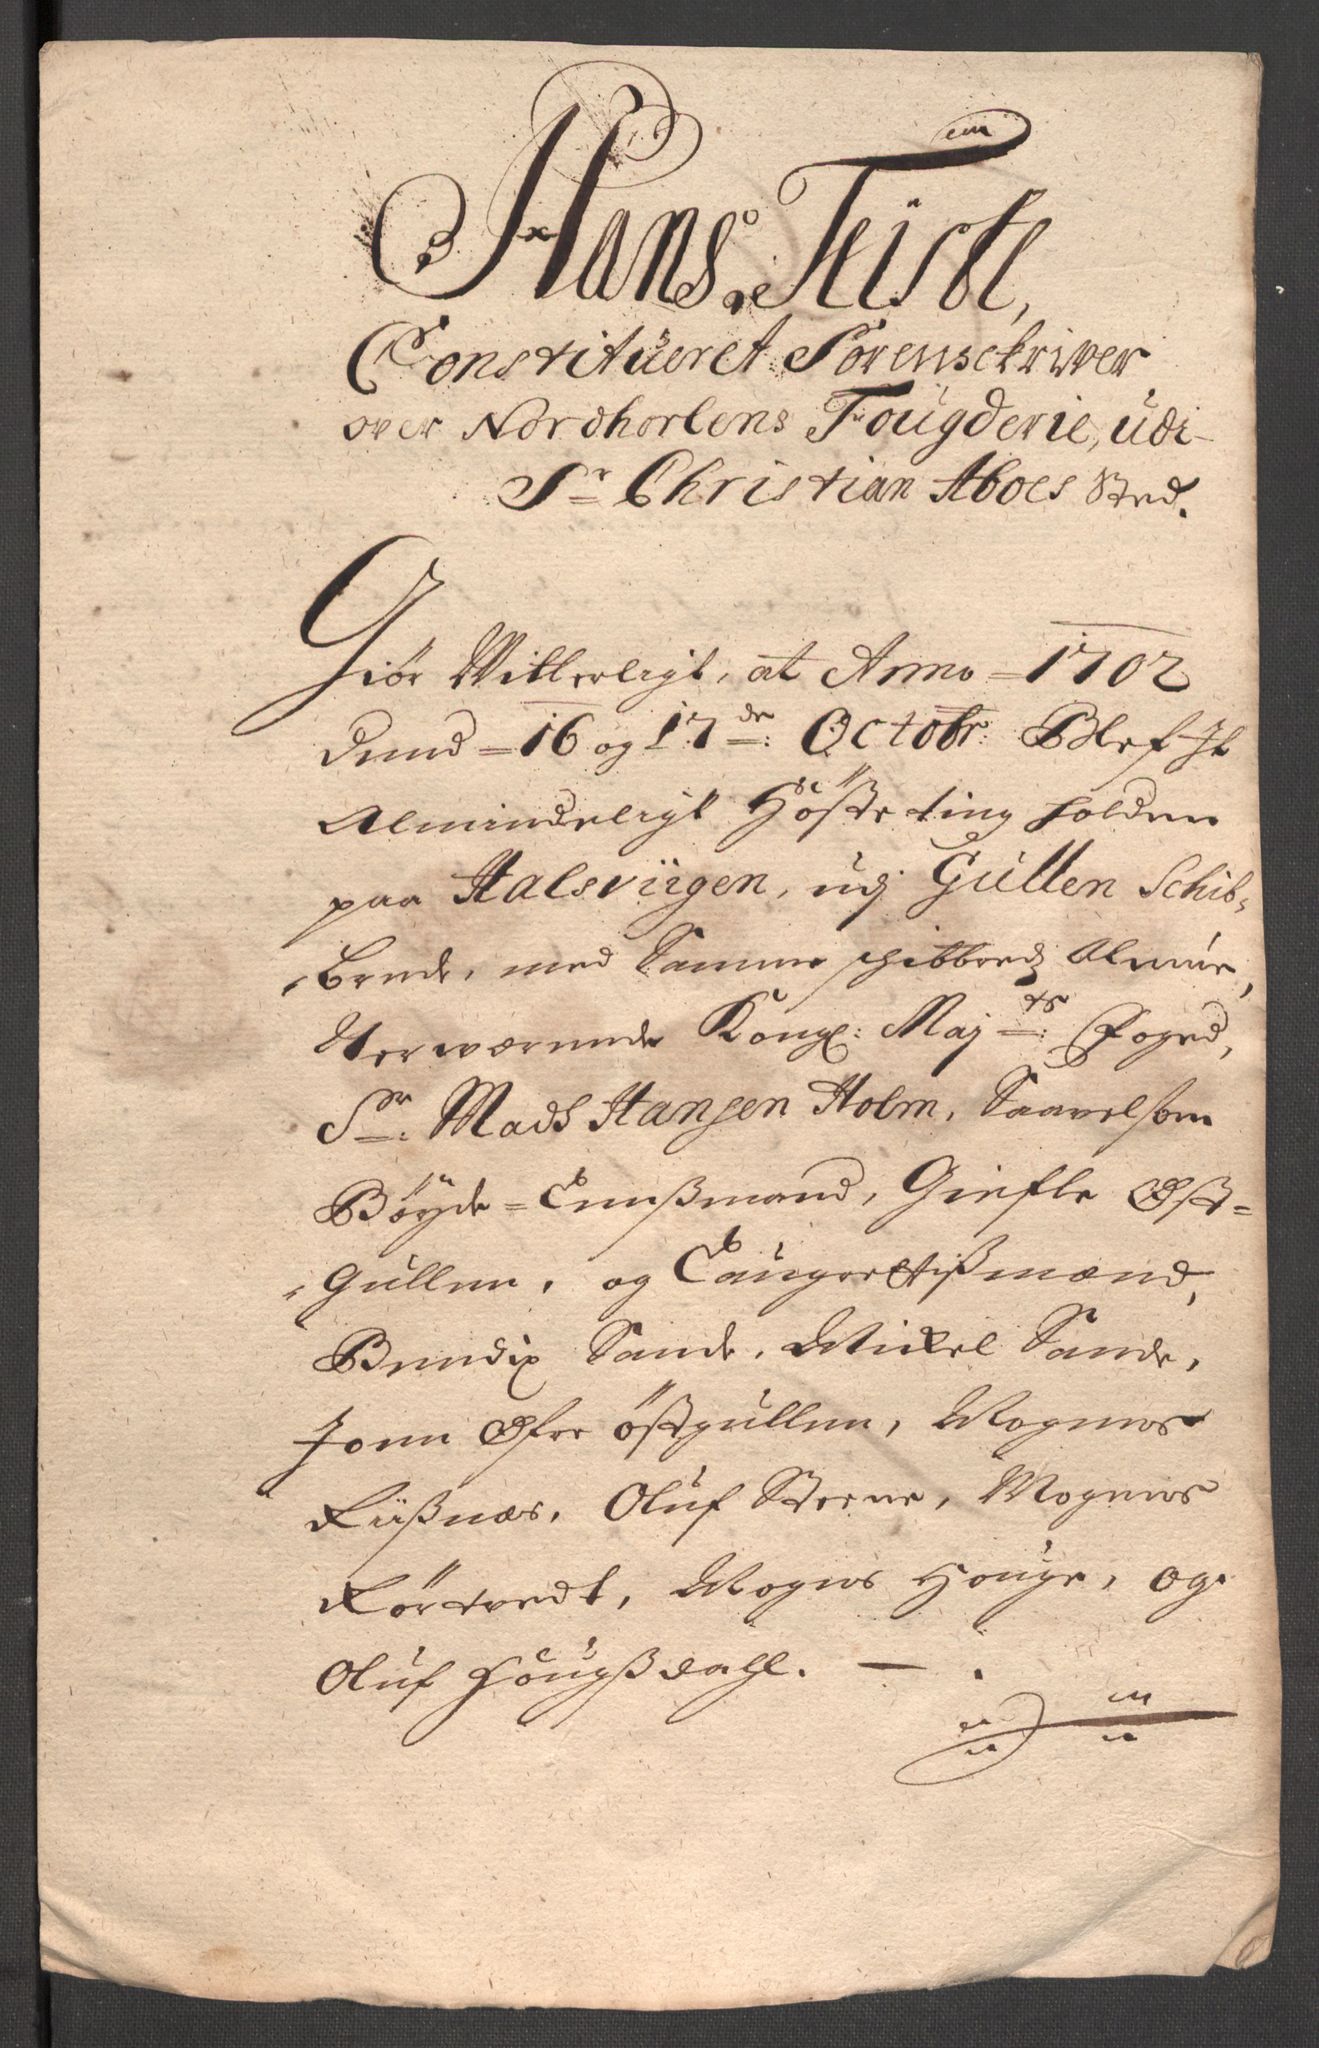 Hans Teiste,
Constitueret Sorenschriver
over Nordhorlens Fougderie, udi
Sr Christian Aboes Sted.
Giör Witterligt, at Anno 1702
dend 16 og 17de: Octobr: Blef It
Almindeligt Höste ting holden
paa Halsviigen, udj Gullen Schib-
brede, med Samme schibbreds Almue,
Nerwærende Kongl: Maj ts: Foged,
Sr: Mads Hansen Holm, Saavelsom
Böyde-Lensmand, Giefle Øst-
Gullen, og Laugrettismænd,
Bendix Sande, Mickel Sande,
Jonn Øfre östgullen, Mogens
Riisnæs, Oluf Steene, Mogens
Körtvedt, Mogns Houge, og
Oluf Hougsdahl.